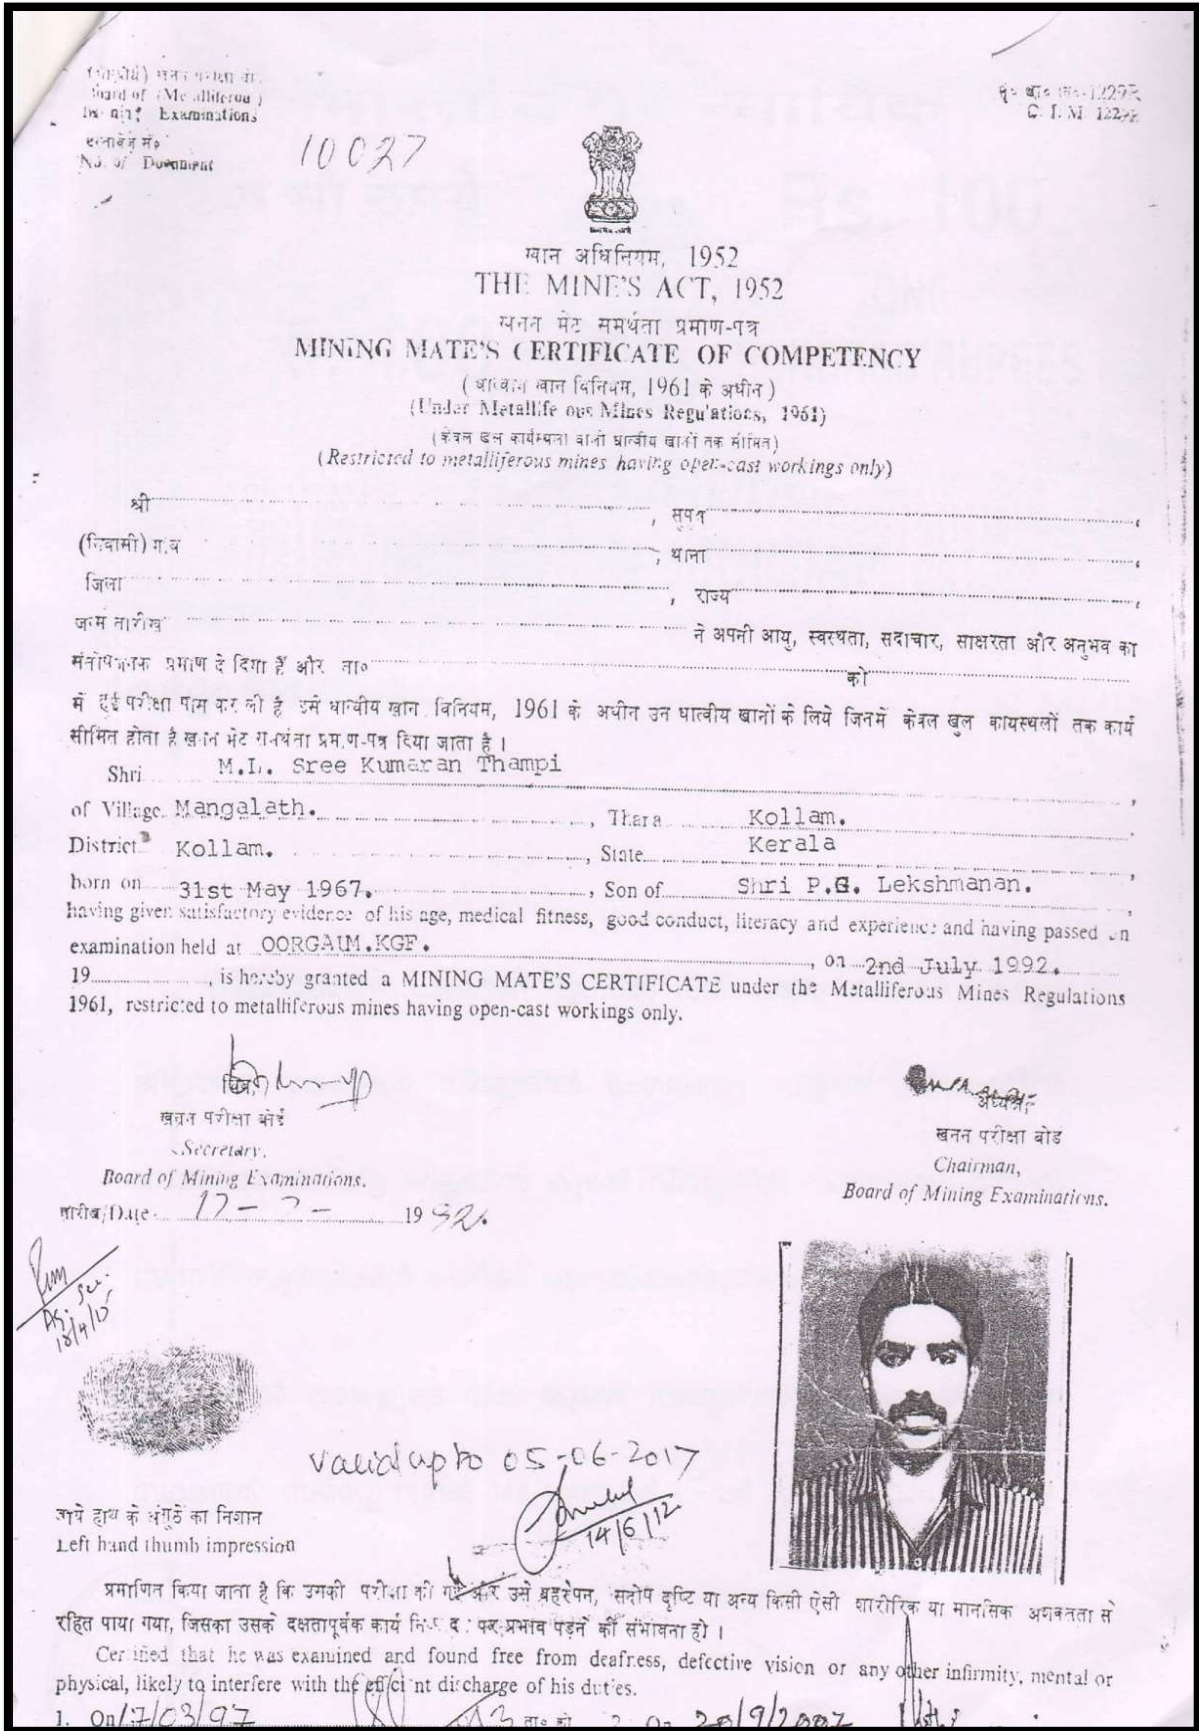 Board of (Metalliferous)
Examinations
No. of Document
10027
C. I. M 1229R
खान अधिनियम, 1952
THE MINE'S ACT, 1952
खनन मेट समर्थता प्रमाण-पत्र
MINING MATE'S CERTIFICATE OF COMPETENCY
(धात्वीय खान विनियम, 1961 के अधीन)
(Under Metalliferous Mines Regulations, 1961)
(केवल खुले कार्यस्थलों वाली धात्वीय खानों तक सीमित)
(Restricted to metalliferous mines having open-cast workings only)
श्री , सुपुत्र ,
(निवासी) गांव , थाना ,
जिला , राज्य ,
जन्म तारीख ने अपनी आयु, स्वस्थता, सदाचार, साक्षरता और अनुभव का
संतोषजनक प्रमाण दे दिया है और ता० को
में हुई परीक्षा पास कर ली है इसे धात्वीय खान विनियम, 1961 के अधीन उन धात्वीय खानों के लिये जिनमें केवल खुल कायस्थलों तक कार्य
सीमित होता है खनन मेट समर्थता प्रमाण-पत्र दिया जाता है ।
Shri M.L. Sree Kumaran Thampi ,
of Village Mangalath. , Thara Kollam.
District Kollam. , State Kerala ,
born on 31st May 1967. , Son of Shri P.G. Lekshmanan. ,
having given satisfactory evidence of his age, medical fitness, good conduct, literacy and experience and having passed an
examination held at OORGAUM.KGF. , on 2nd July 1992.
19 , is hereby granted a MINING MATE'S CERTIFICATE under the Metalliferous Mines Regulations
1961, restricted to metalliferous mines having open-cast workings only.
सचिव,
खनन परीक्षा बोर्ड
Secretary,
Board of Mining Examinations.
अध्यक्ष,
खनन परीक्षा बोर्ड
Chairman,
Board of Mining Examinations.
तारीख/Date 17 - 7 - 1992.
18/4/15
Valid upto 05-06-2017
14/6/12
बायें हाथ के अंगूठे का निशान
Left hand thumb impression
प्रमाणित किया जाता है कि उनकी परीक्षा की गई और उसे बहरेपन, सदोष दृष्टि या अन्य किसी ऐसी शारीरिक या मानसिक अशक्तता से
रहित पाया गया, जिसका उसके दक्षतापूर्वक कार्य पर प्रभाव पड़ने की संभावना हो ।
Certified that he was examined and found free from deafness, defective vision or any other infirmity, mental or
physical, likely to interfere with the efficient discharge of his duties.
1. On 17/03/97 ता० को 2. On 20/9/2007